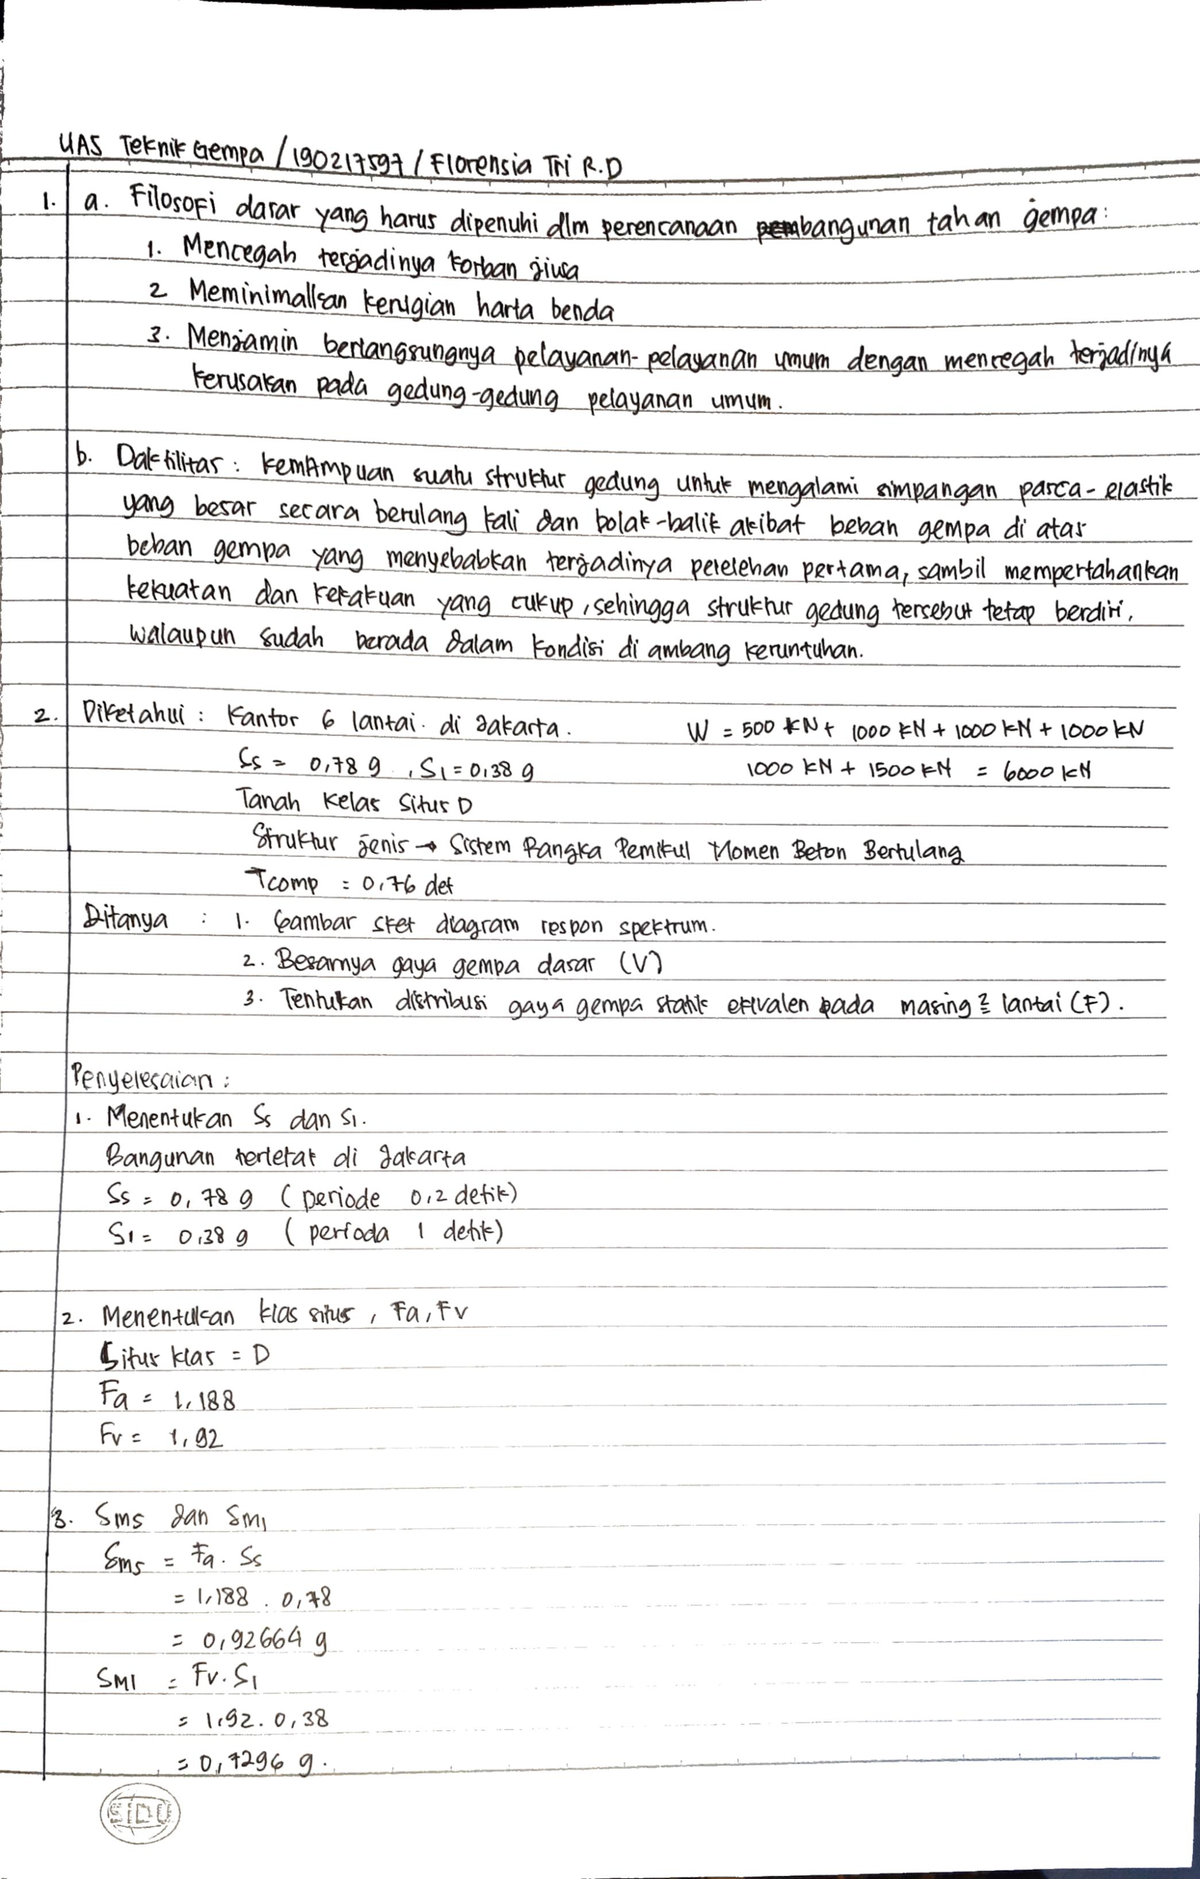 UAS Teknik Gempa / 190217597 / Florensia Tri R.D
1. a. Filosofi dasar yang harus dipenuhi dlm perencanaan bangunan tahan gempa:
1. Mencegah terjadinya korban jiwa
2 Meminimalkan kerugian harta benda
3. Menjamin berlangsungnya pelayanan-pelayanan umum dengan mencegah terjadinya
kerusakan pada gedung-gedung pelayanan umum.
b. Daktilitas : kemampuan suatu struktur gedung untuk mengalami simpangan pasca-elastik
yang besar secara berulang kali dan bolak-balik akibat beban gempa di atas
beban gempa yang menyebabkan terjadinya pelelehan pertama, sambil mempertahankan
kekuatan dan kekakuan yang cukup, sehingga struktur gedung tersebut tetap berdiri,
walaupun sudah berada dalam kondisi di ambang keruntuhan.
2. Diketahui : Kantor 6 lantai. di Jakarta. W = 500 KN + 1000 KN + 1000 KN + 1000 KN
Ss = 0,78 g , S1 = 0,38 g 1000 KN + 1500 KN = 6000 KN
Tanah Kelas Situs D
Struktur jenis → Sistem Rangka Pemikul Momen Beton Bertulang
Tcomp = 0,76 det
Ditanya : 1. Gambar sket diagram respon spektrum.
2. Besarnya gaya gempa dasar (V)
3. Tentukan distribusi gaya gempa statik ekivalen pada masing2 lantai (F).
Penyelesaian :
1. Menentukan Ss dan S1.
Bangunan terletak di Jakarta
Ss = 0,78 g (periode 0,2 detik)
S1 = 0,38 g (perioda 1 detik)
2. Menentukan klas situs, Fa, Fv
Situs klas = D
Fa = 1,188
Fv = 1,92
3. Sms dan Sm1
Sms = Fa. Ss
= 1,188 . 0,78
= 0,92664 g
SM1 = Fv. S1
= 1,92. 0,38
= 0,7296 g.
SiDU